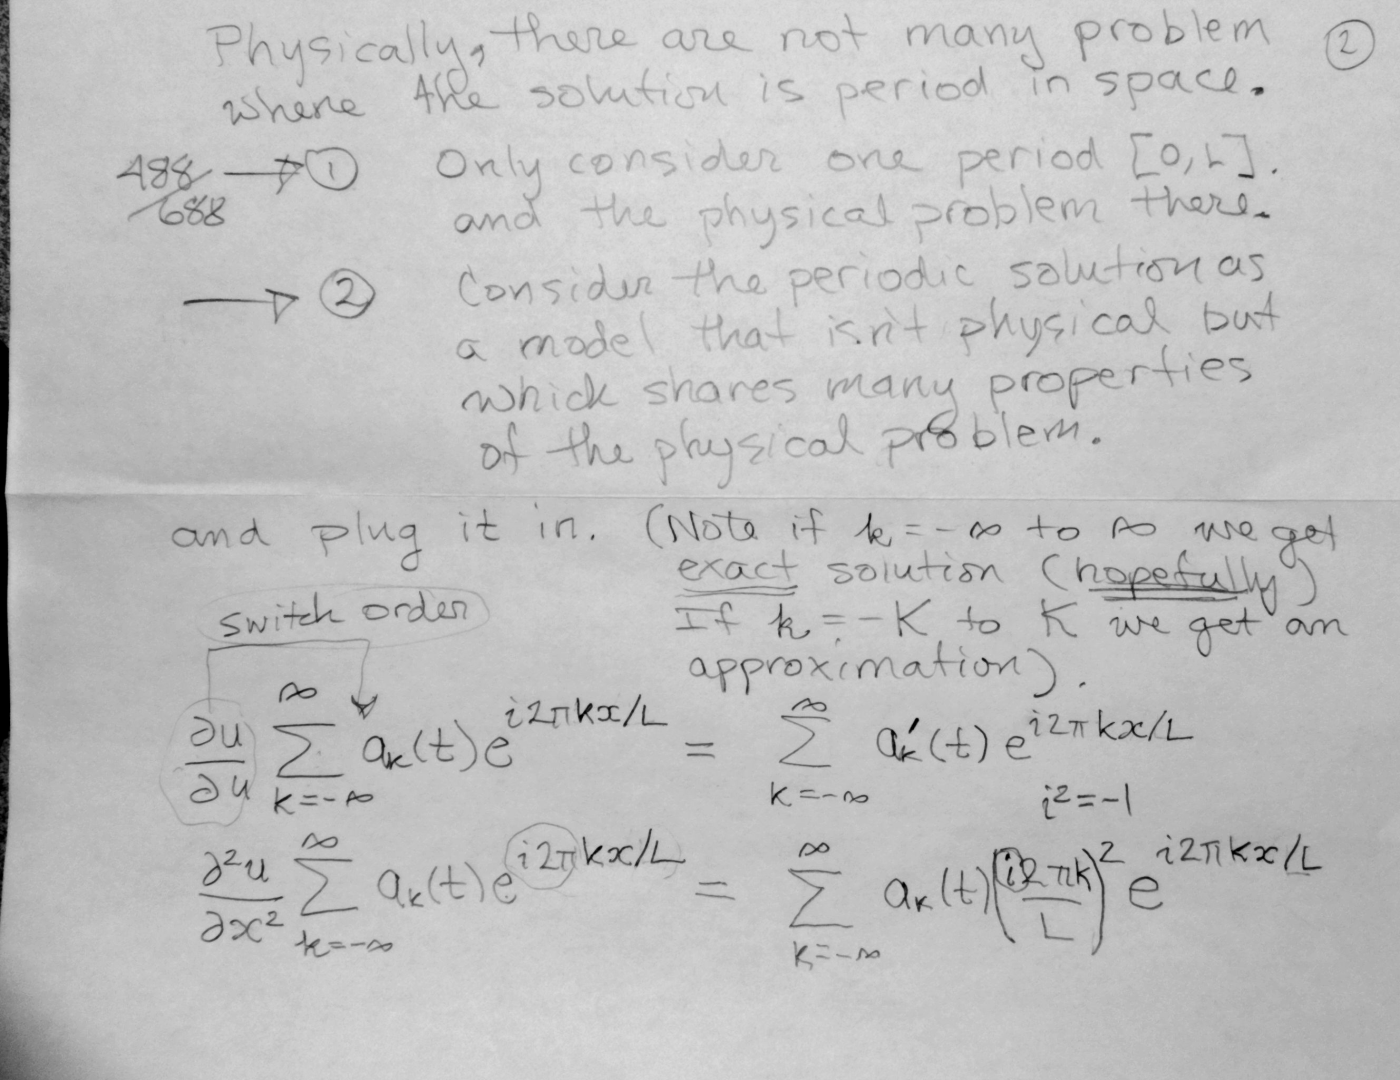 Physically, there are not many problem ②
where the solution is period in space.
488/688 → ① Only consider one period [0, L].
and the physical problem there.
→ ② Consider the periodic solution as
a model that isn't physical but
which shares many properties
of the physical problem.
and plug it in. (Note if k = -∞ to ∞ we get
exact solution (hopefully)
If k = -K to K we get an
approximation).
switch order
∂u/∂u ∑_{k=-∞}^{∞} a_k(t) e^{i2πkx/L} = ∑_{k=-∞}^{∞} a_k'(t) e^{i2πkx/L}
i² = -1
∂²u/∂x² ∑_{k=-∞}^{∞} a_k(t) e^{i2πkx/L} = ∑_{k=-∞}^{∞} a_k(t) (i2πk/L)² e^{i2πkx/L}